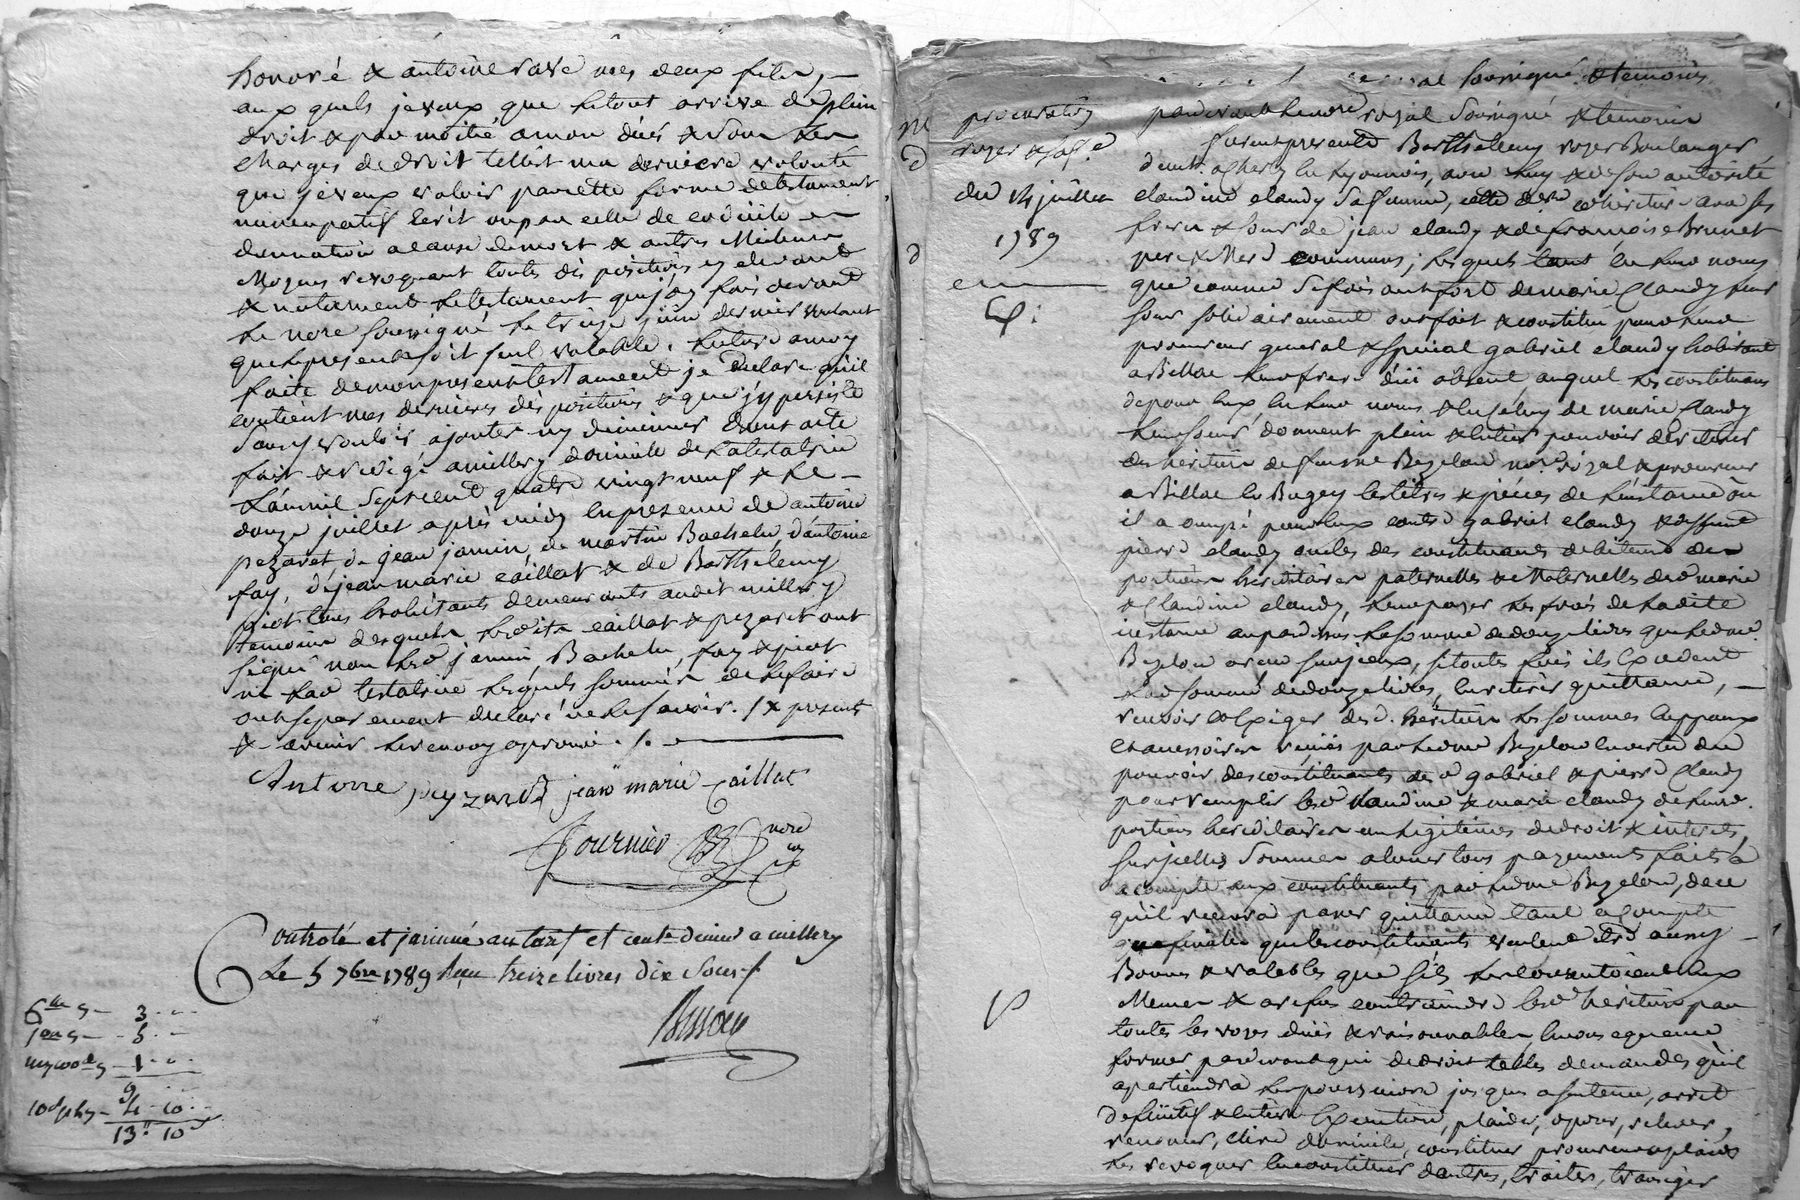 honoré & antoine rave mes deux fils, —
aux quels je veux que le tout arrive de plein
droit & par moitié a mon décés & sous les
charges de droit telle est ma derniere volonté
que je veux valoir par cette forme de testament
nuncupatif écrit ou par celle de codicile —
donnation a cause de mort & autres Meilleurs
Moyens revoquant toutes dispositions cy devant
& notament le testament que j'ay fais devant
le nore soussigné le treize juin dernier voulant
que le present soit seul valable, lecture a moy
faite de mon present testament je declare qu'il
contient mes dernieres dispositions & que j'y persiste
sans y vouloir ajouter ny diminuer Dont acte
fait & redigé a millery domicile de la testatrice
L'an mil sept cent quatre vingt neuf & le —
douze juillet après midy en presence de antoine
pezaret de jean jamin, de martin Bachelu, d'antoine
fay, de jean marie caillat & de Barthelemy
piot tous habitants demeurants audit millery
temoins desquels lesdits caillat & pezaret ont
signé non lesd jamin, Bachelu, fay & piot
ni lad testatrice lesquels sommés de le faire
ont separement declaré ne le savoir. / x presents
& avenir le renvoy aprouvé ./. —
Antoine peyzaret jean marie Caillat
Fournier nore
Controlé et jansinué au tarif et cent denier a millery
Le 5 7bre 1789 Reçu treize livres dix sous
6me s — 3
— 5
— 1
9
— 4 10
13 10
procuration
royer &
du 14 juillet
1789
royal soussigné & temoins
pardevant le nore royal soussigné & temoins
furent presents Barthelemy royer Boulanger
demt. a en Lyonnois, avec luy & de son autorité
claudine claudy sa femme, cette dre cohéritiere avec ses
freres & sœur de jean claudy & de francoise Brunet
pere & Mere communs; lesquels tant en leur noms
que comme se faisant fort de marie Claudy leur
sœur solidairement ont fait & constitué pour leur
procureur general & special gabriel claudy habitant
a Billac leur frere icii absent auquel les constituans
de pour eux en leur noms & en celuy de marie Claudy
leur sœur donnent plein & entier pouvoir de retirer
des héritiers de feu me Bezelon nore royal & procureur
a Billac en Bugey les titres & piéces de l'instance ou
il a occupé pour eux contre gabriel claudy & deffunt
pierre claudy oncles des constituants debiteurs des
portions héréditaires paternelles & Maternelles desd marie
& Claudine claudy, leur payer les frais de ladite
instance au par dessus la somme de douze livres que led me.
Bezelon a reçu sur jceux, si toutes fois ils excedent
lad somme de douze livres, en retirer quittance, —
recevoir et exiger desd. héritiers les sommes
et accessoires reçues par led me Bezelon en vertu du
pouvoir des constituants desd gabriel & pierre Claudy
pour remplir lesd claudine & marie claudy de leurs
portions héréditaires ou legitimes de droit & interets,
sur jcelles sommes alouer tous payements faits à
a compte aux constituants par led me Bezelon, de ce
qu'il recevra passer quittance tant a Compte
que finalle que les constituants veulent être aussy —
Bonnes & valables que s'ils les consentoient eux
Memes & au refus contraindre lesd héritiers par
toutes les voyes dües & raisonnables, en consequence
former pardevant qui de droit telles demandes qu'il
apartiendra les poursuivre jusques a sentence, arret
definitif & entiere Execution, plaider, oposer, relever,
renoncer, elire domicile, constituer procureur aplaids
les revoquer en constituer d'autres, traiter, transiger